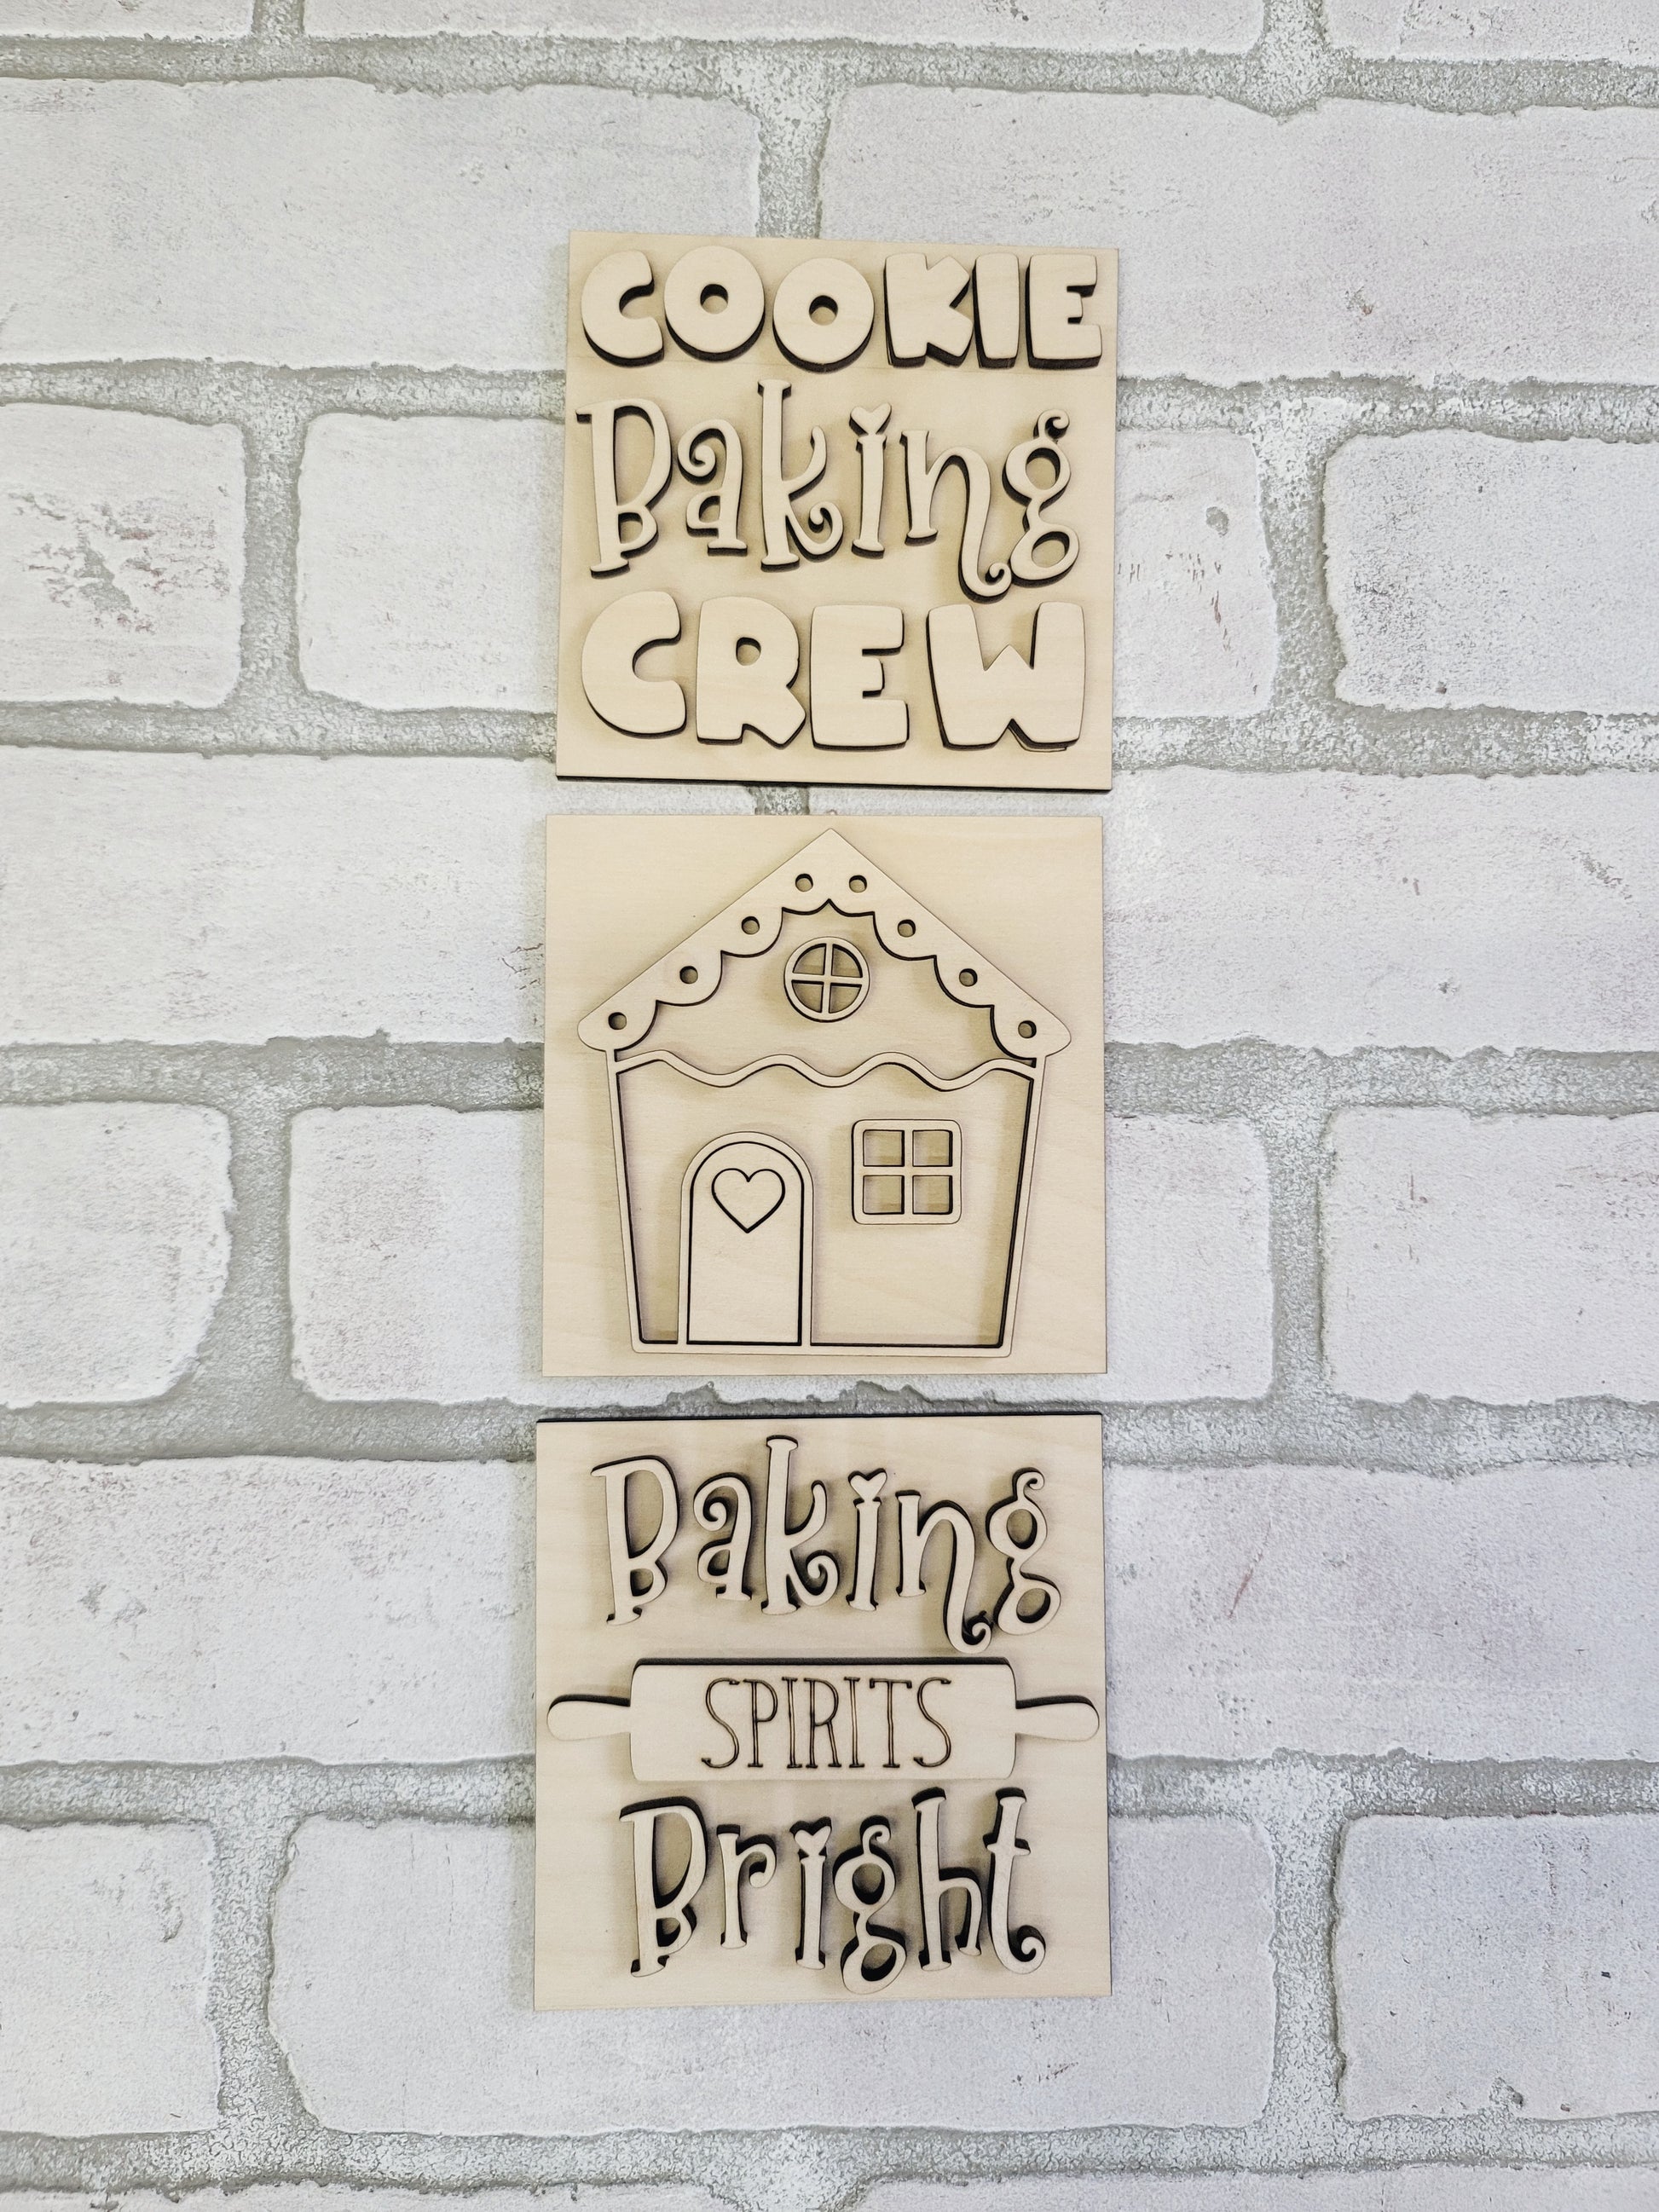 COOKIE
Baking
CREW
Baking
SPIRITS
Bright